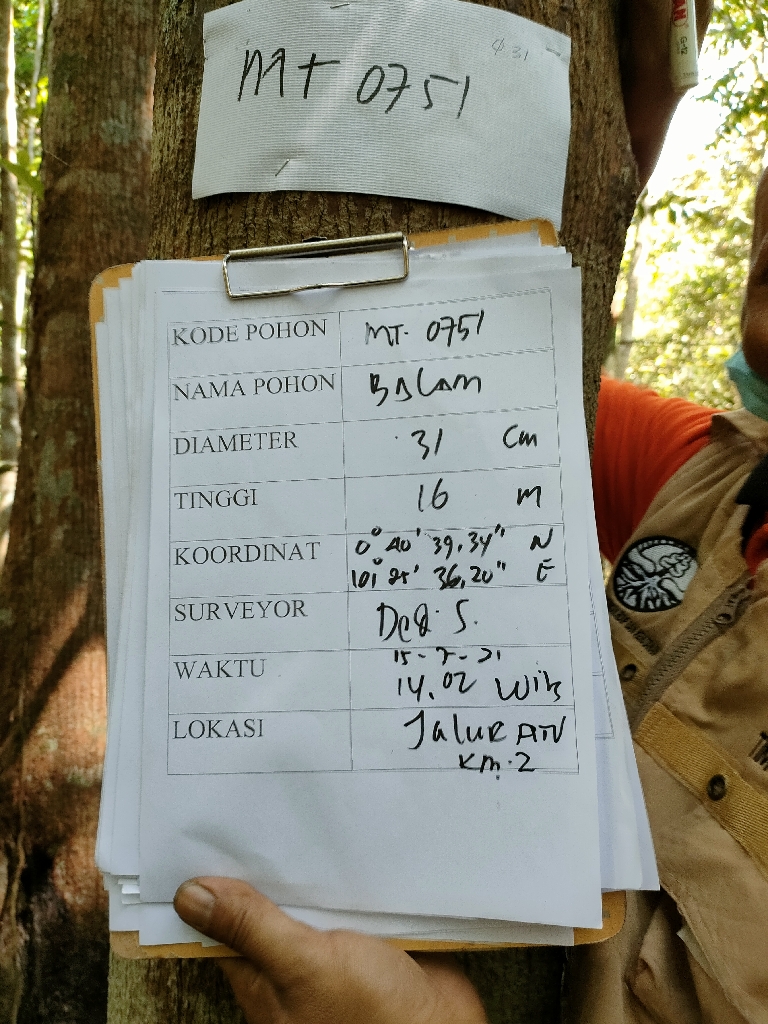 Ø 31
MT 0751
KODE POHON MT. 0751
NAMA POHON BALam
DIAMETER 31 Cm
TINGGI 16 m
KOORDINAT 0° 40' 39,34" N
36,20" E
SURVEYOR S.
WAKTU
14.02 Wib
LOKASI Jalur ATV
Km. 2